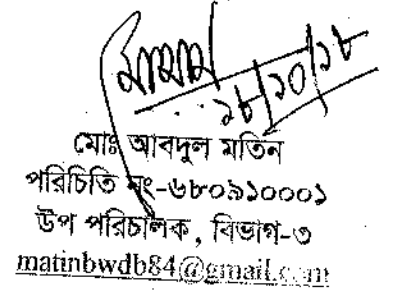 ১৮/১০/১৮
মোঃ আবদুল মতিন
পরিচিতি নং-৬৮০৯১০০০১
উপ পরিচালক, বিভাগ-৩
matinbwdb84@gmail.com